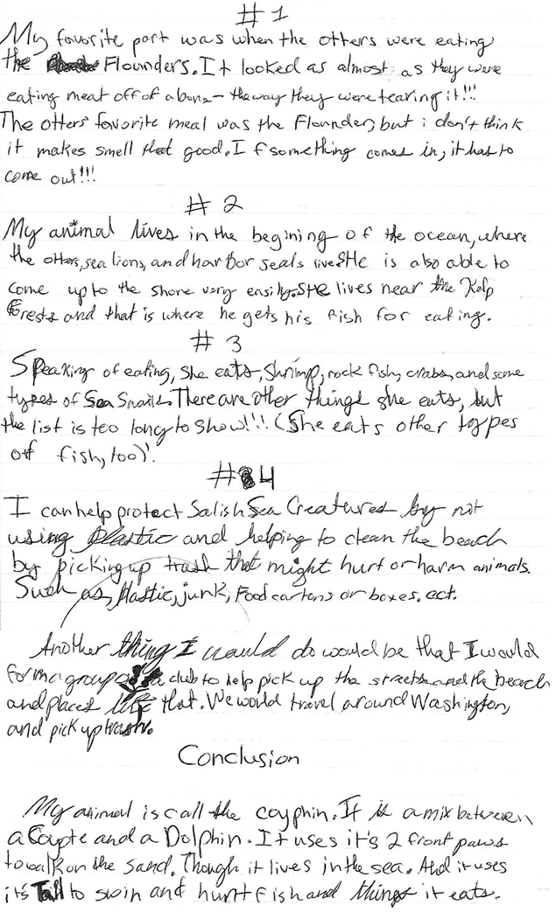 #1
My favorite part was when the otters were eating
the Flounders. It looked as almost as they were
eating meat off of a bone - the way they were tearing it!!!
The otters' favorite meal was the Flounder, but i don't think
it makes smell that good. If something comes in, it has to
come out!!!
#2
My animal lives in the begining of the ocean, where
the otters, sea lions, and harbor seals live. He is also able to
come up to the shore very easily. She lives near the Kelp
Forests and that is where he gets his fish for eating.
#3
Speaking of eating, she eats, Shrimp, rock fish, crabs, and some
types of Sea Snails. There are other things she eats, but
the list is too long to show!!! (She eats other types
of fish, too)!
#4
I can help protect Salish Sea Creatures by not
using plastic and helping to clean the beach
by picking up trash that might hurt or harm animals.
Such as, Plastic, junk, Food cartons or boxes. ect.
Another thing I would do would be that I would
form a group a club to help pick up the streets and the beach
and places like that. We would travel around Washington,
and pick up trash.
Conclusion
My animal is call the coyphin. It is a mix between
a Coyote and a Dolphin. It uses it's 2 front paws
to walk on the sand. Though it lives in the sea. And it uses
it's Tail to swim and hunt fish and things it eats.